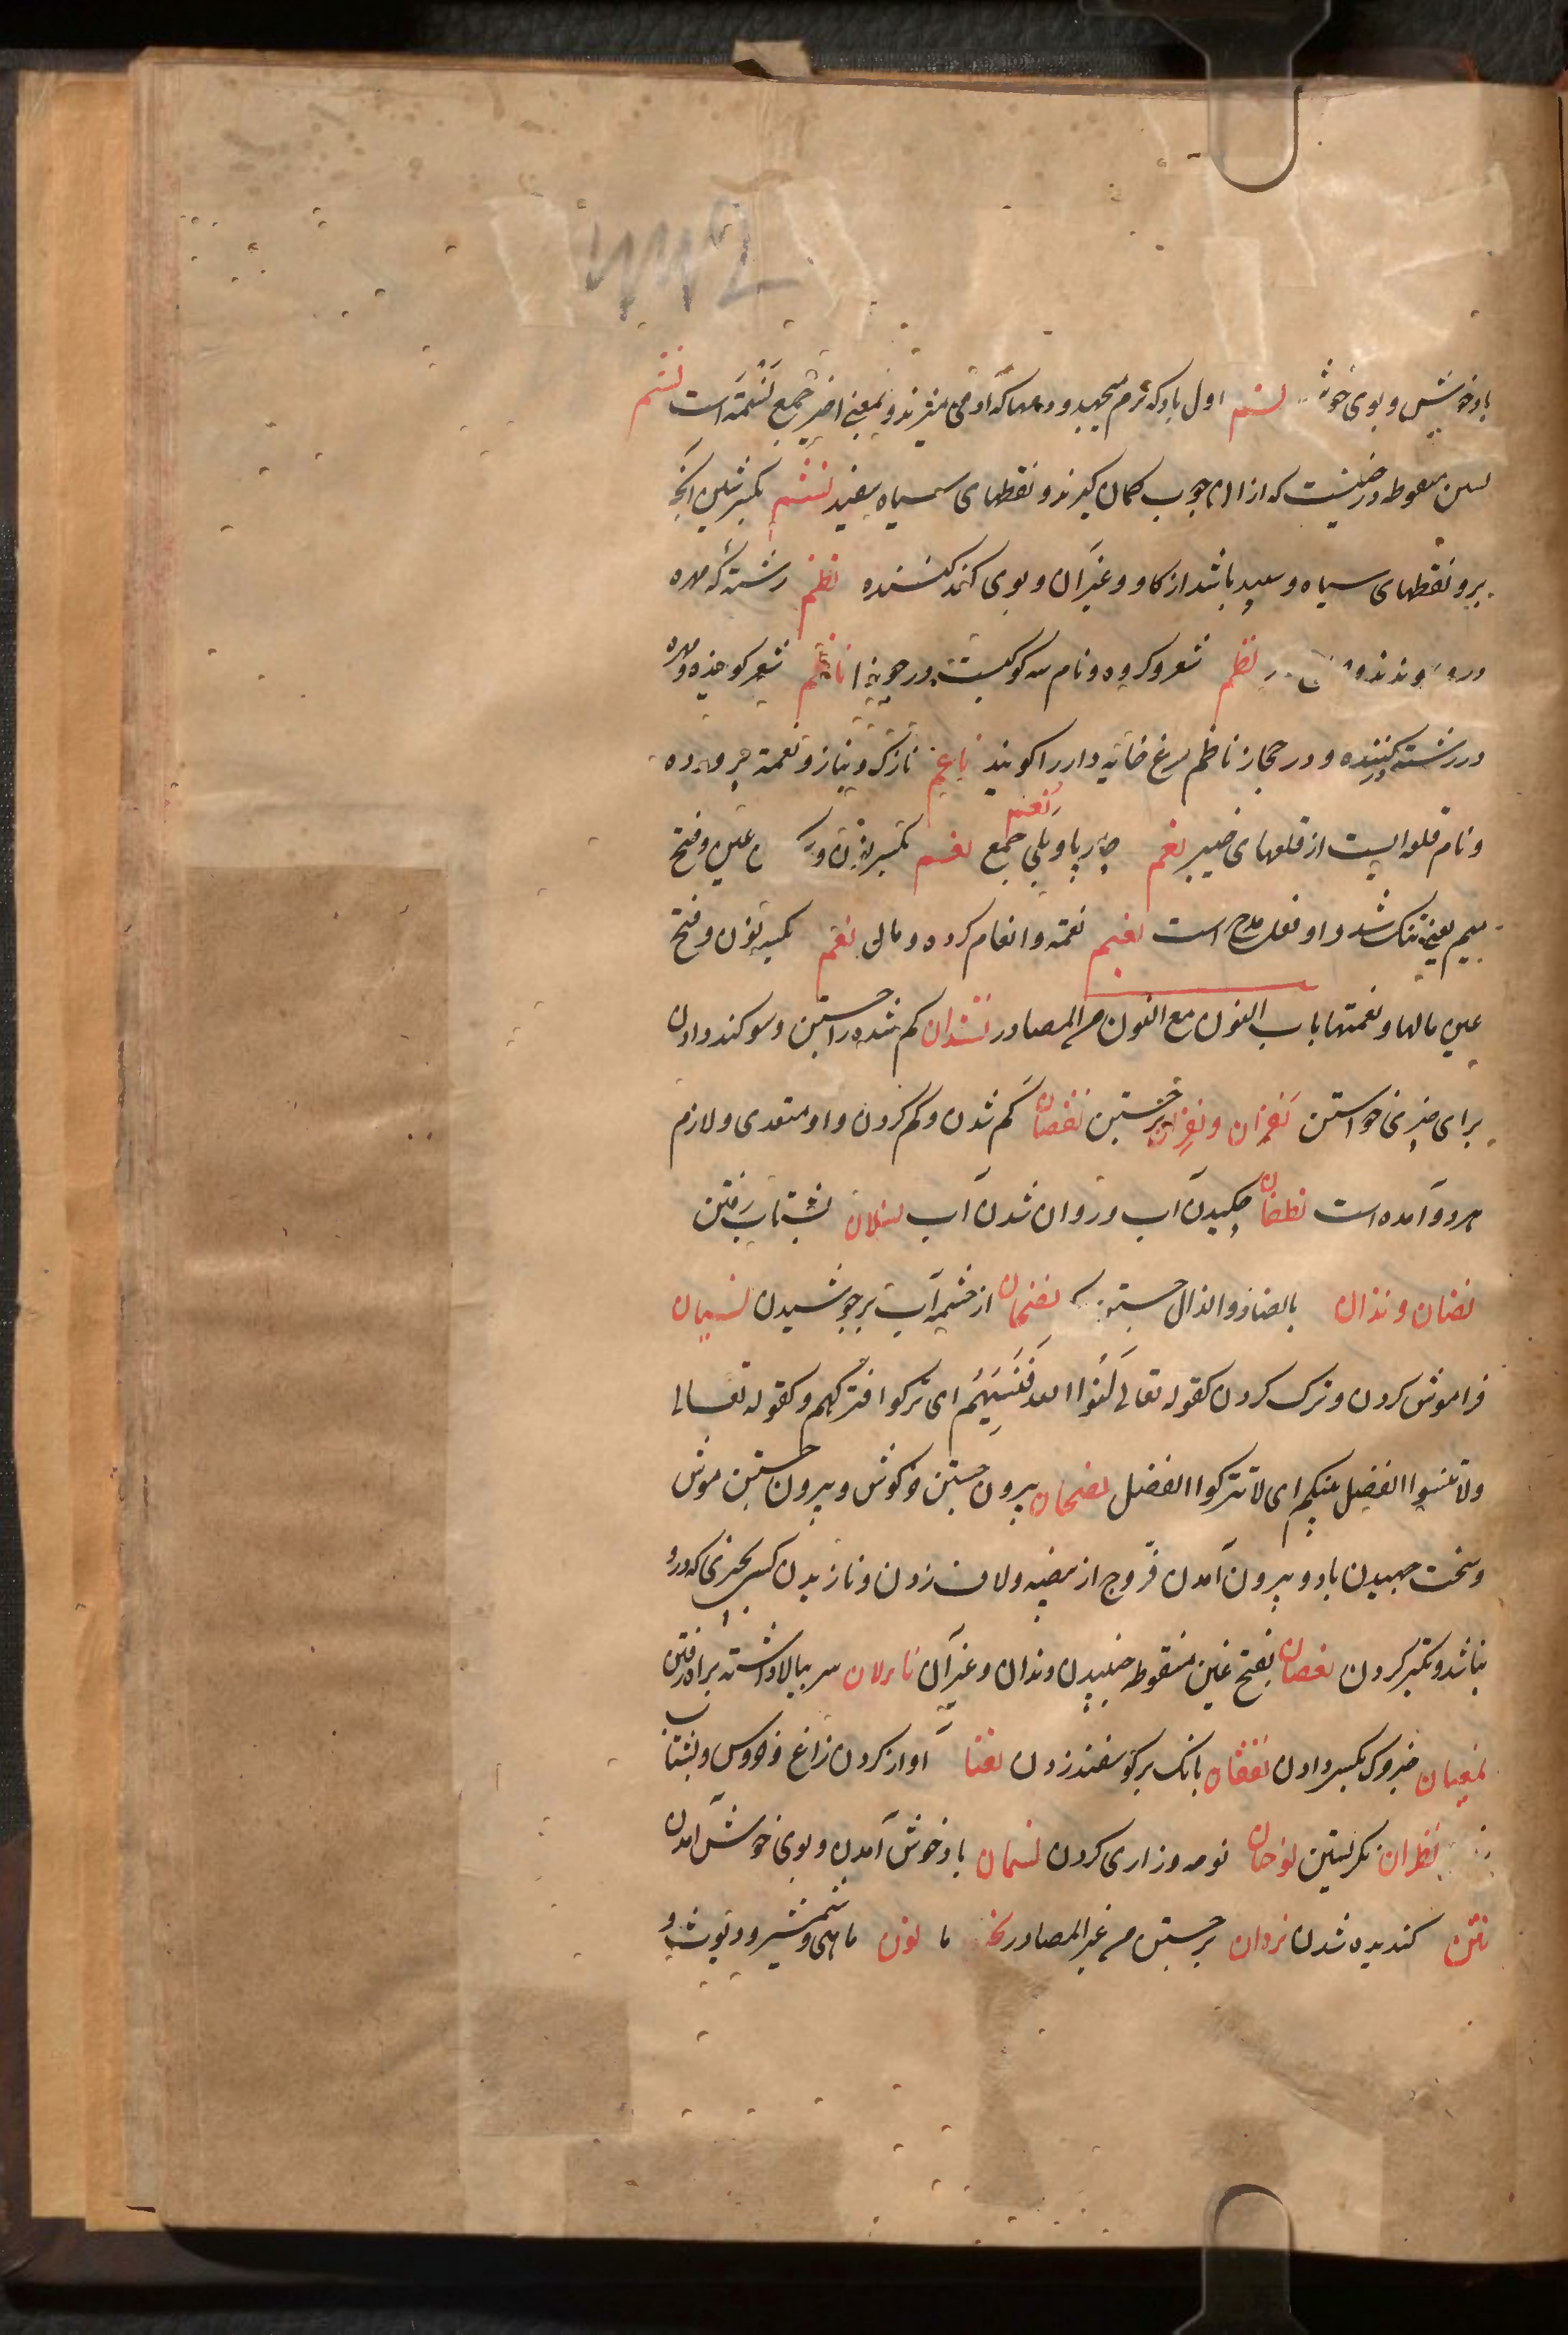 باد خوش و بوی خوش نسم اول باد که نرم میجهد و دمها که آدمی میزند و بمعنی اخیر جمع نسمة است نشم
بسین منقوطه درختیست که ازان چوب کمان گیرند و نقطهای سیاه سفید نشم بکسر شین آنچه
برو نقطهای سیاه و سپید باشد از گاو و غیر آن و بوی کند کننده نظم رشته که مهره
درو نظم شعر و گروه و نام سه کوکبست در جوزا ناظم شعر کوینده و مهره
در رشته کننده و در حجاز ناظم مرغ خانه دار را کویند ناعم نازک و بناز و نعمة پرورده
و نام قلعه ایست از قلعهای خیبر نعم چارپا و بلی جمع نعم بکسر نون و عین و فتح
میم یعنی نیک شد و او فعل مدح است نعیم نعمة و انعام کرده و مال نعم بکسر نون و فتح
عین مالها و نعمتها باب النون مع النون من المصادر نشدان کم شده را جستن و سوکند دادن
برای چیزی خواستن نفزان و نفزان برجستن نقصان کم شدن و کم کردن و او متعدی و لازم
هر دو آمده است نطفان چکیدن آب و روان شدن آب نسلان بشتاب رفتن
نضان و نذان بالضاد والذال جستن نضخان از چشمه آب بر جوشیدن نسیان
فراموش کردن و ترک کردن کقوله تعالی نسوا الله فنسیهم ای ترکوا فترکهم و کقوله تعالی
ولا تنسوا الفضل بینکم ای لا تترکوا الفضل نفجان بیرون جستن خرکوش و بیرون جستن موش
و سخت جهیدن باد و بیرون آمدن فروج از بیضه و لاف زدن و نازیدن کسی بچیزی که درو
نباشد و تکبر کردن نغضان بفتح غین منقوطه جنبیدن دندان و غیر آن نا لان سر ببالا داشته براه رفتن
خبر مرک بکسی دادن بانک بر کوسفند زدن آواز کردن زاغ و خروس و بشتاب
نظران نکریستن نوحان نوحه و زاری کردن نسمان باد خوش آمدن و بوی خوش آمدن
نتن کندیده شدن نزوان برجستن من غیر المصادر نون ماهی و شمشیر و دویت و